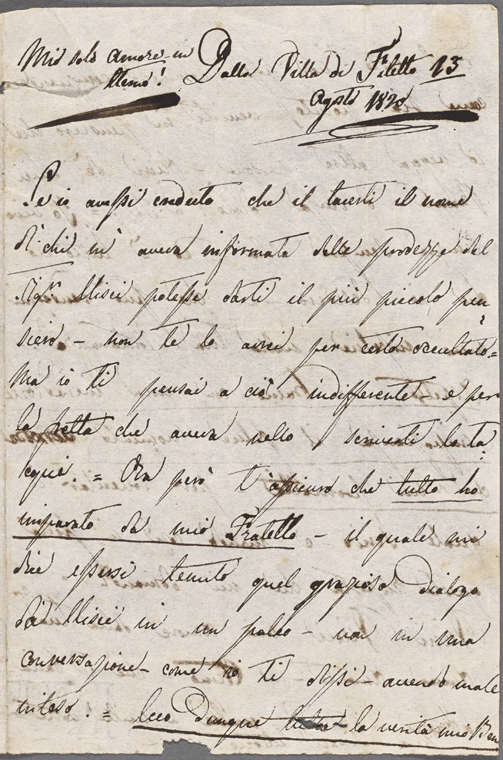 Mio solo amore in
eterno!
Dalla Villa di Filetto 13
Agosto 1820
Se io avessi creduto che il tacerti il nome
di chi m'aveva informata delle prodezze del
Sigr. potesse darti il più piccolo pen
siero - non te lo avrei per certo occultato =
Ma io ti pensai a ciò indifferente - e per
la fretta che aveva nello scriverti lo ta
cqui. = Ora però t'assicuro che tutto ho
imparato da mio Fratello - il quale mi
dice essersi tenuto quel grazioso dialogo
da in un palco - non in una
conversazione - come io ti dissi - avendo male
inteso. = Ecco dunque tutta la verità mio Ben